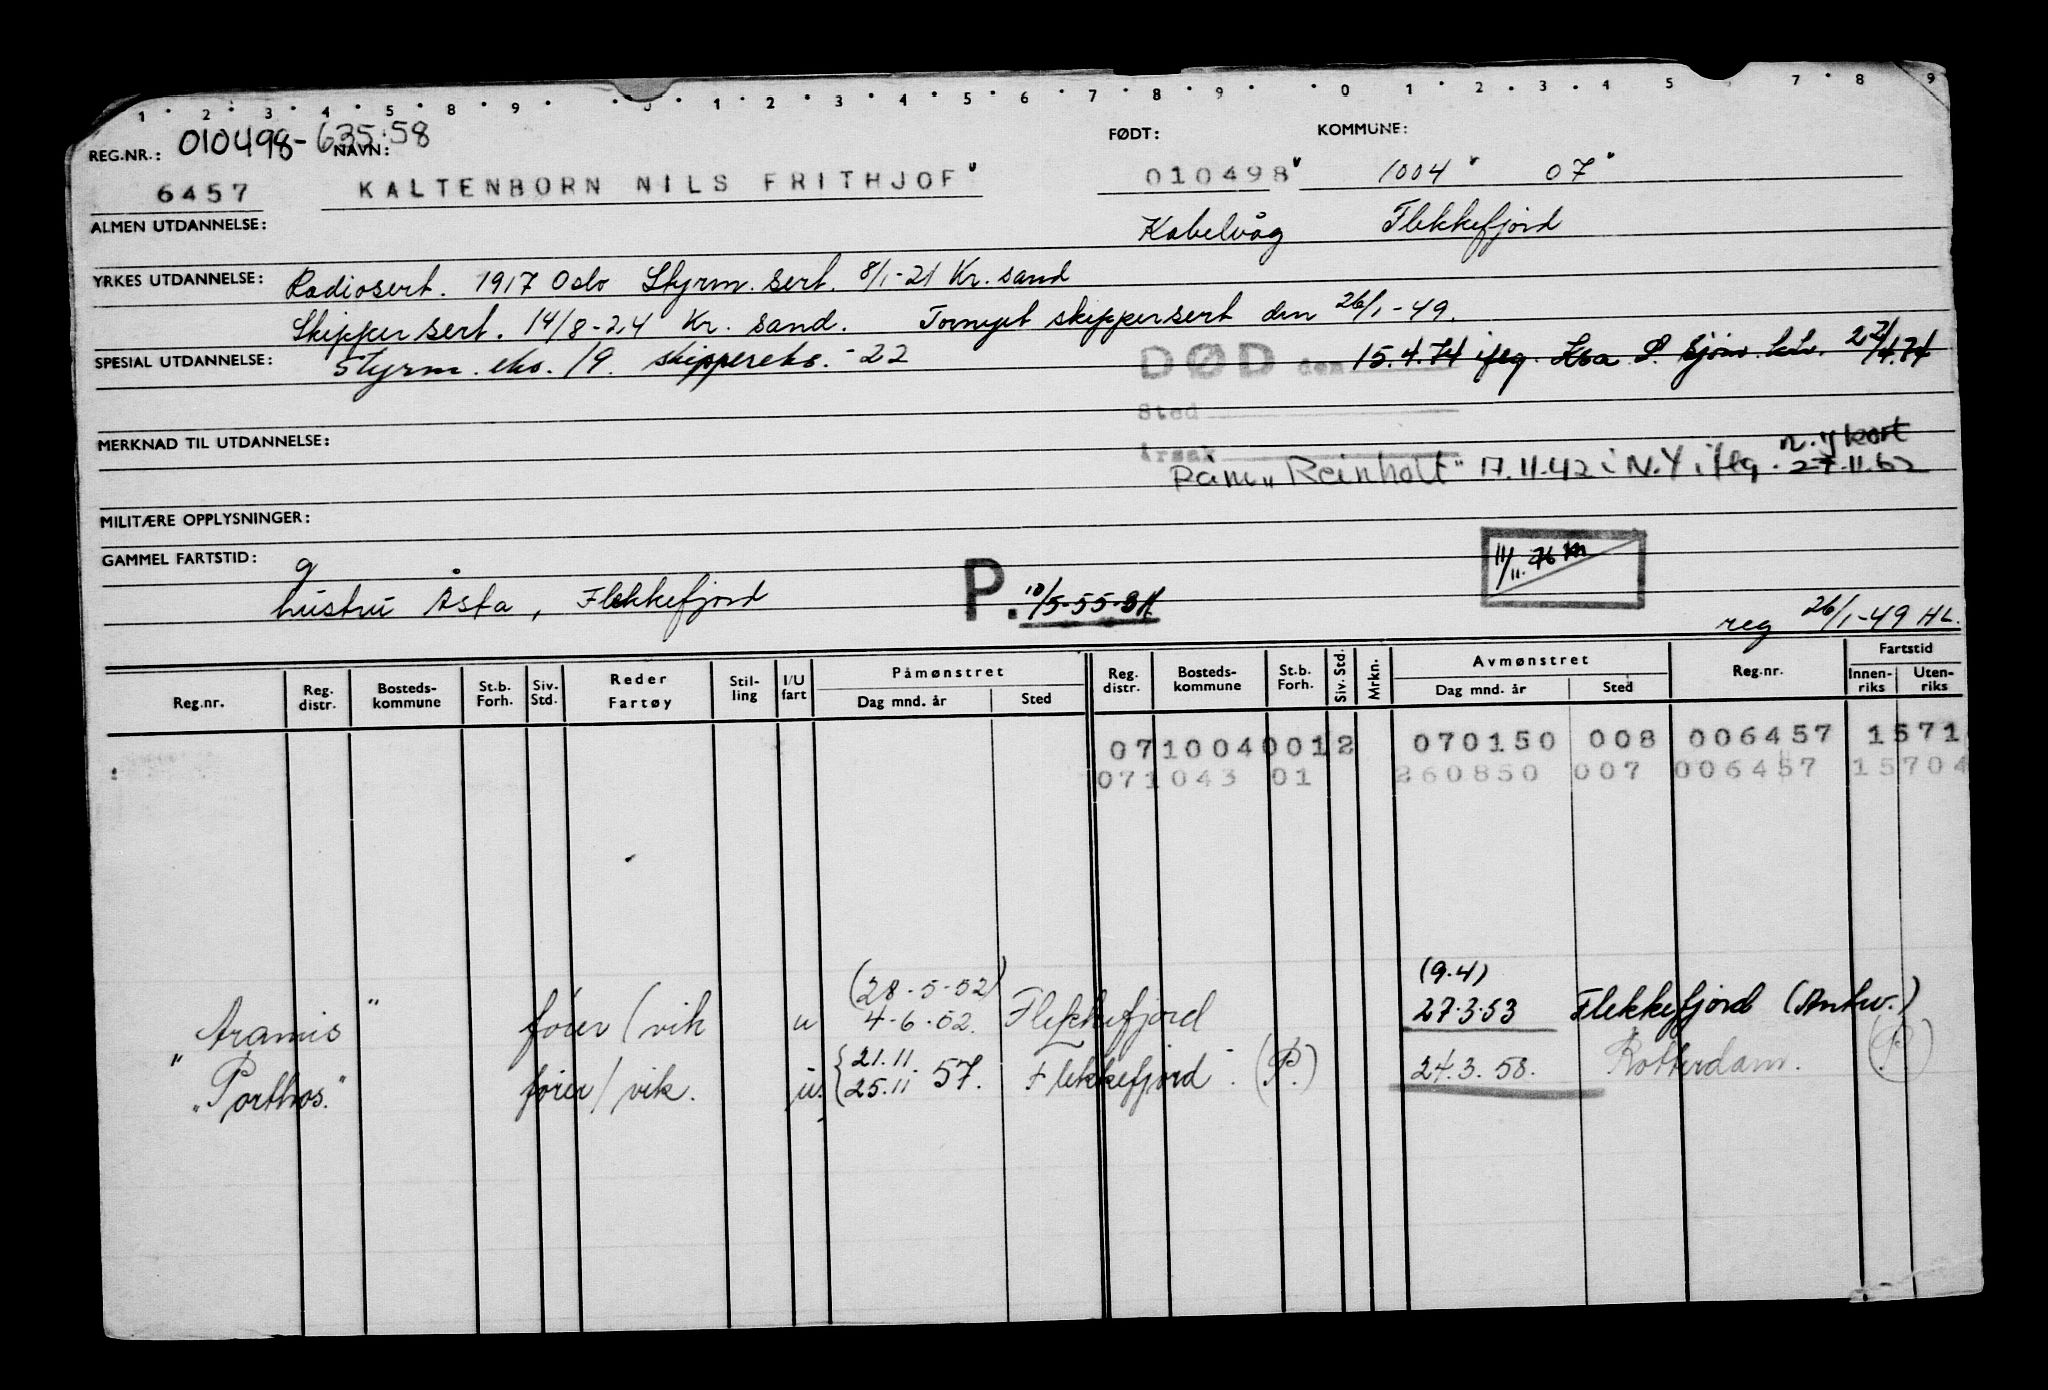 1 2 3 4 5 8 9 0 1 2 3 4 5 6 7 8 9 0 1 2 3 4 5 7 8 9
REG.NR.: 010498-635.58 NAVN: FØDT: KOMMUNE:
6457 KALTENBORN NILS FRITHJOF 010498 1004 07
ALMEN UTDANNELSE: Kabelvåg Flekkefjord
YRKES UTDANNELSE: Radiosert. 1917 Oslo Styrm. sert. 8/1-21 Kr. sand
Skippersert. 14/8-24 Kr. sand. Fornyet skippersert den 26/1-49.
SPESIAL UTDANNELSE: Styrm. eks. 19. skippereks. -22 DØD den 15.4.74 iflg. Sjøm. 22/4.74
Sted
MERKNAD TIL UTDANNELSE: n.y kort
Årsak
Påm "Reinholt" 17.11.42 i N.Y iflg. 27.11.62
MILITÆRE OPPLYSNINGER:
GAMMEL FARTSTID: g 11/11.76
hustru Åsta, Flekkefjord P. 10/5-55
reg 26/1-49 HL.
Reg.nr. Reg. distr. Bosteds-kommune St.b. Forh. Siv. Std. Reder Fartøy Stil-ling I/U fart Påmønstret Dag mnd. år Sted Reg. distr. Bosteds-kommune St.b. Forh. Siv. Std. Mrkn. Avmønstret Dag mnd. år Sted Reg.nr. Fartstid Innen-riks Uten-riks
071004 0012 070150 008 006457 1571
071043 01 260850 007 006457 15704
(28-5-52) (9.4)
"Aramis" fører/vik u 4-6-52. Flekkefjord 27.3.53 Flekkefjord (Antw.)
"Porthos." fører/vik. u. {21.11. 25.11 57. Flekkefjord. (P.) 24.3.58. Rotterdam. (P)